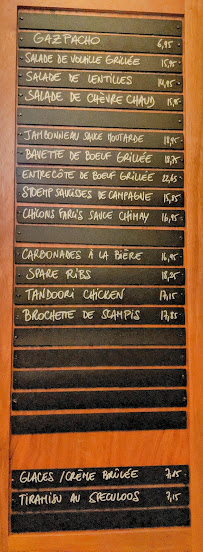 GAZPACHO 6,95
SALADE DE VOLAILLE GRILLÉE 15,95
SALADE DE LENTILLES 14,95
SALADE DE CHÈVRE CHAUD 15,95
JAMBONNEAU SAUCE MOUTARDE 18,95
BAVETTE DE BOEUF GRILLÉE 18,75
ENTRECÔTE DE BOEUF GRILLÉE 22,65
STOEMP SAUCISSES DE CAMPAGNE 15,85
CHICONS FARCIS SAUCE CHIMAY 16,95
CARBONADES À LA BIÈRE 16,95
SPARE RIBS 18,25
TANDOORI CHICKEN 17,15
BROCHETTE DE SCAMPIS 17,85
GLACES / CRÈME BRÛLÉE 7,15
TIRAMISU AU SPECULOOS 7,15